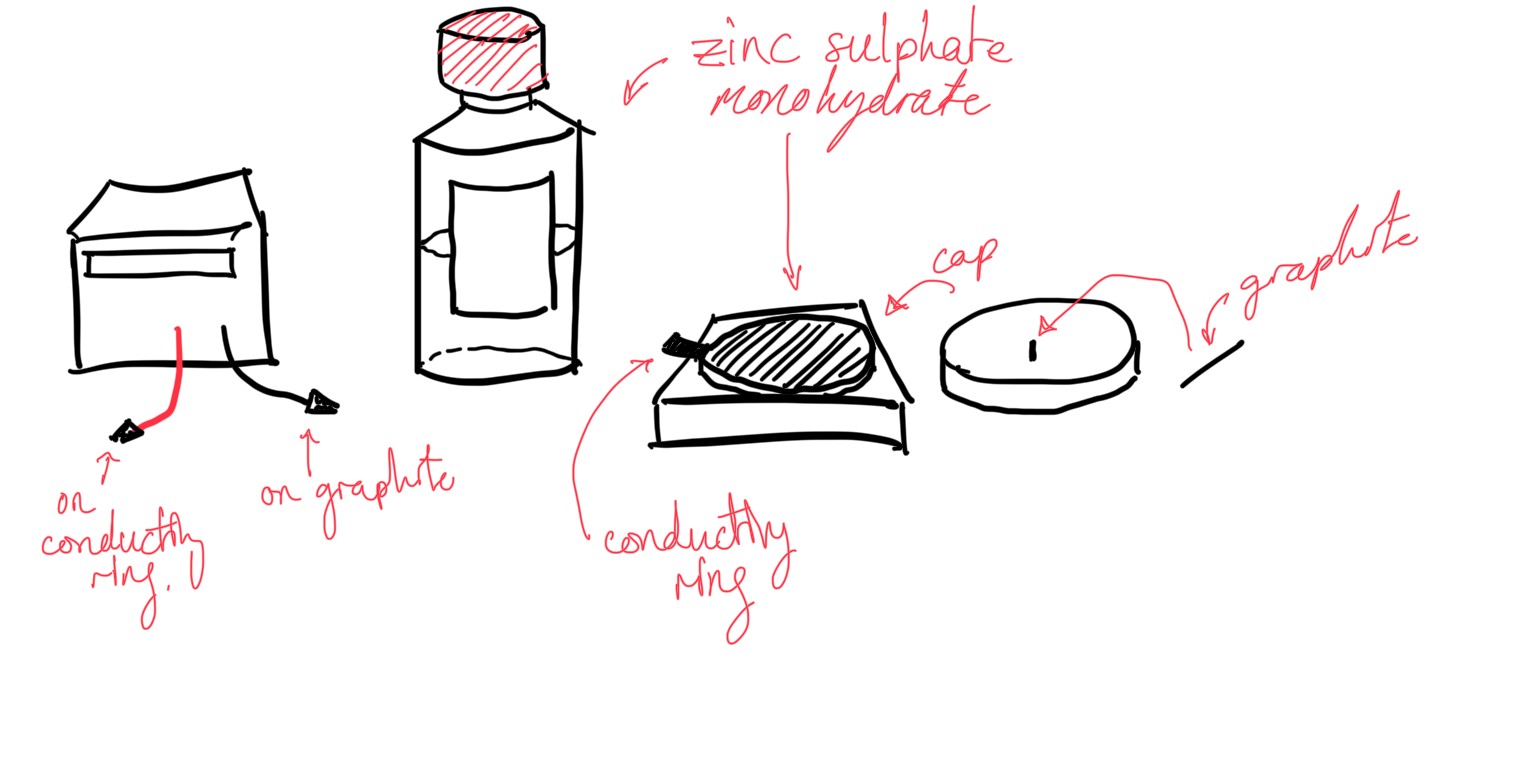 zinc sulphate
monohydrate
cap
graphite
on
conducting
ring.
on graphite
conducting
ring